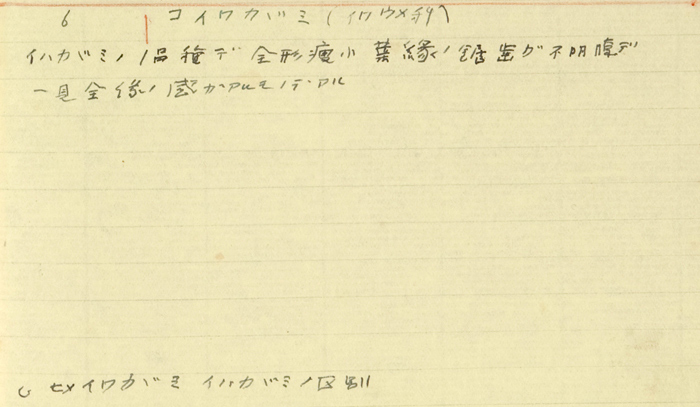 6 コイワカガミ(イワウメ科)
イハカガミノ品種デ全形痩小葉縁ノ鋸歯ガ不明瞭デ
一見全縁ノ感ガアルモノデアル
ヒメイワカガミ イハカガミノ区別